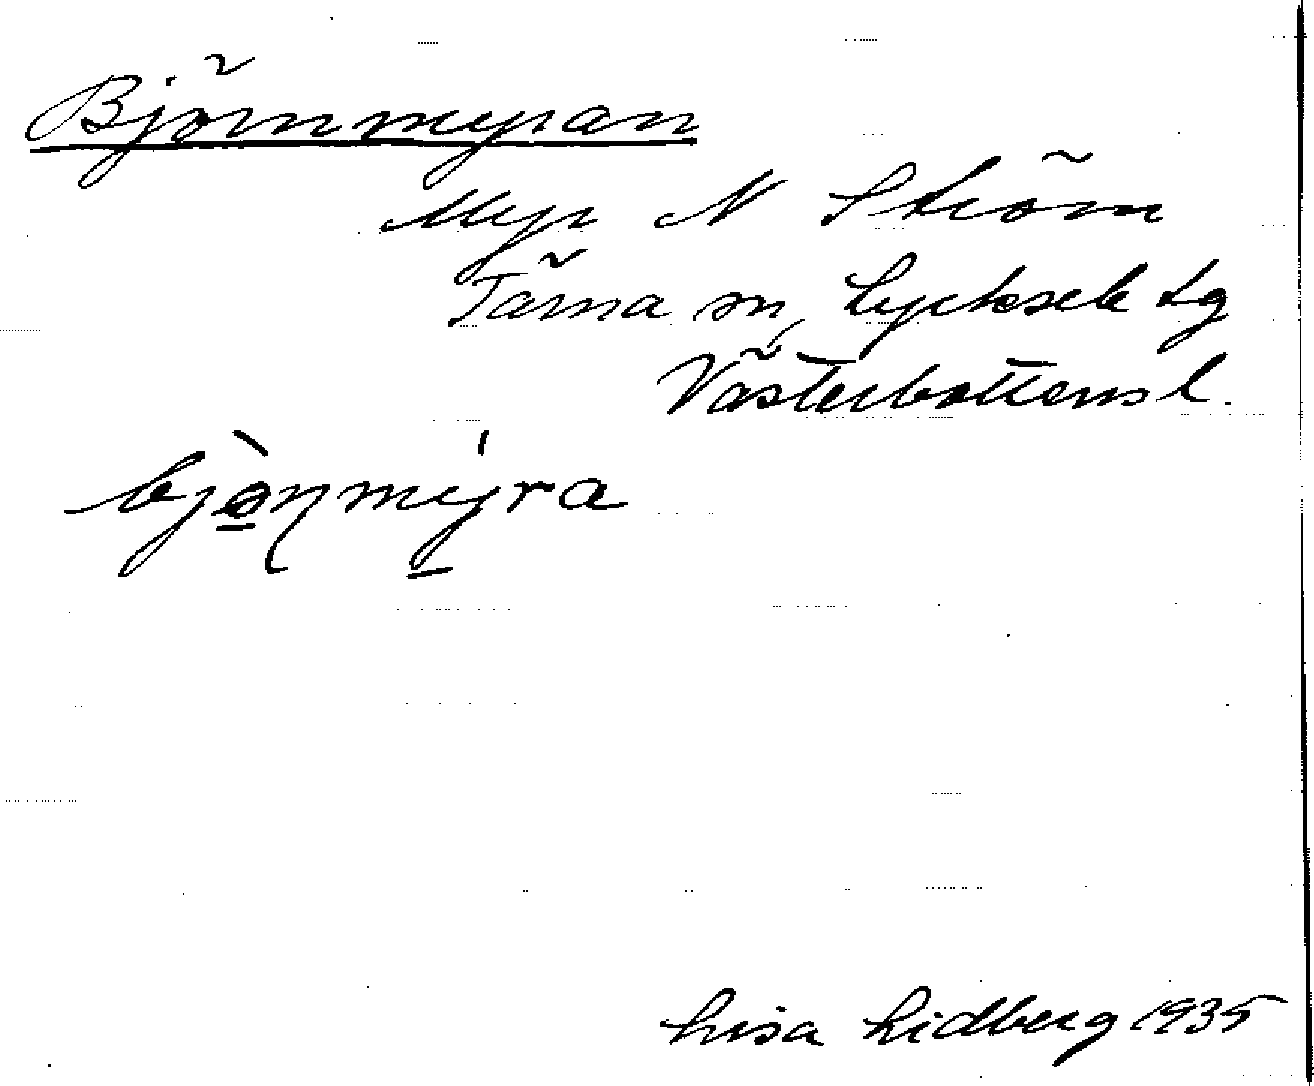 Björnmyran
Myr N Ström
Tärna sn, Lycksele tg
Västerbottens l.
bjönmyra
Lisa Lidberg 1935